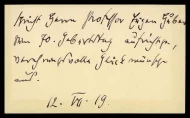 spricht Herrn Professor Eugen Huber
zum 70. Geburtstag aufrichtige,
verehrungsvolle Glückwünsche
aus.
12. VII. 19.